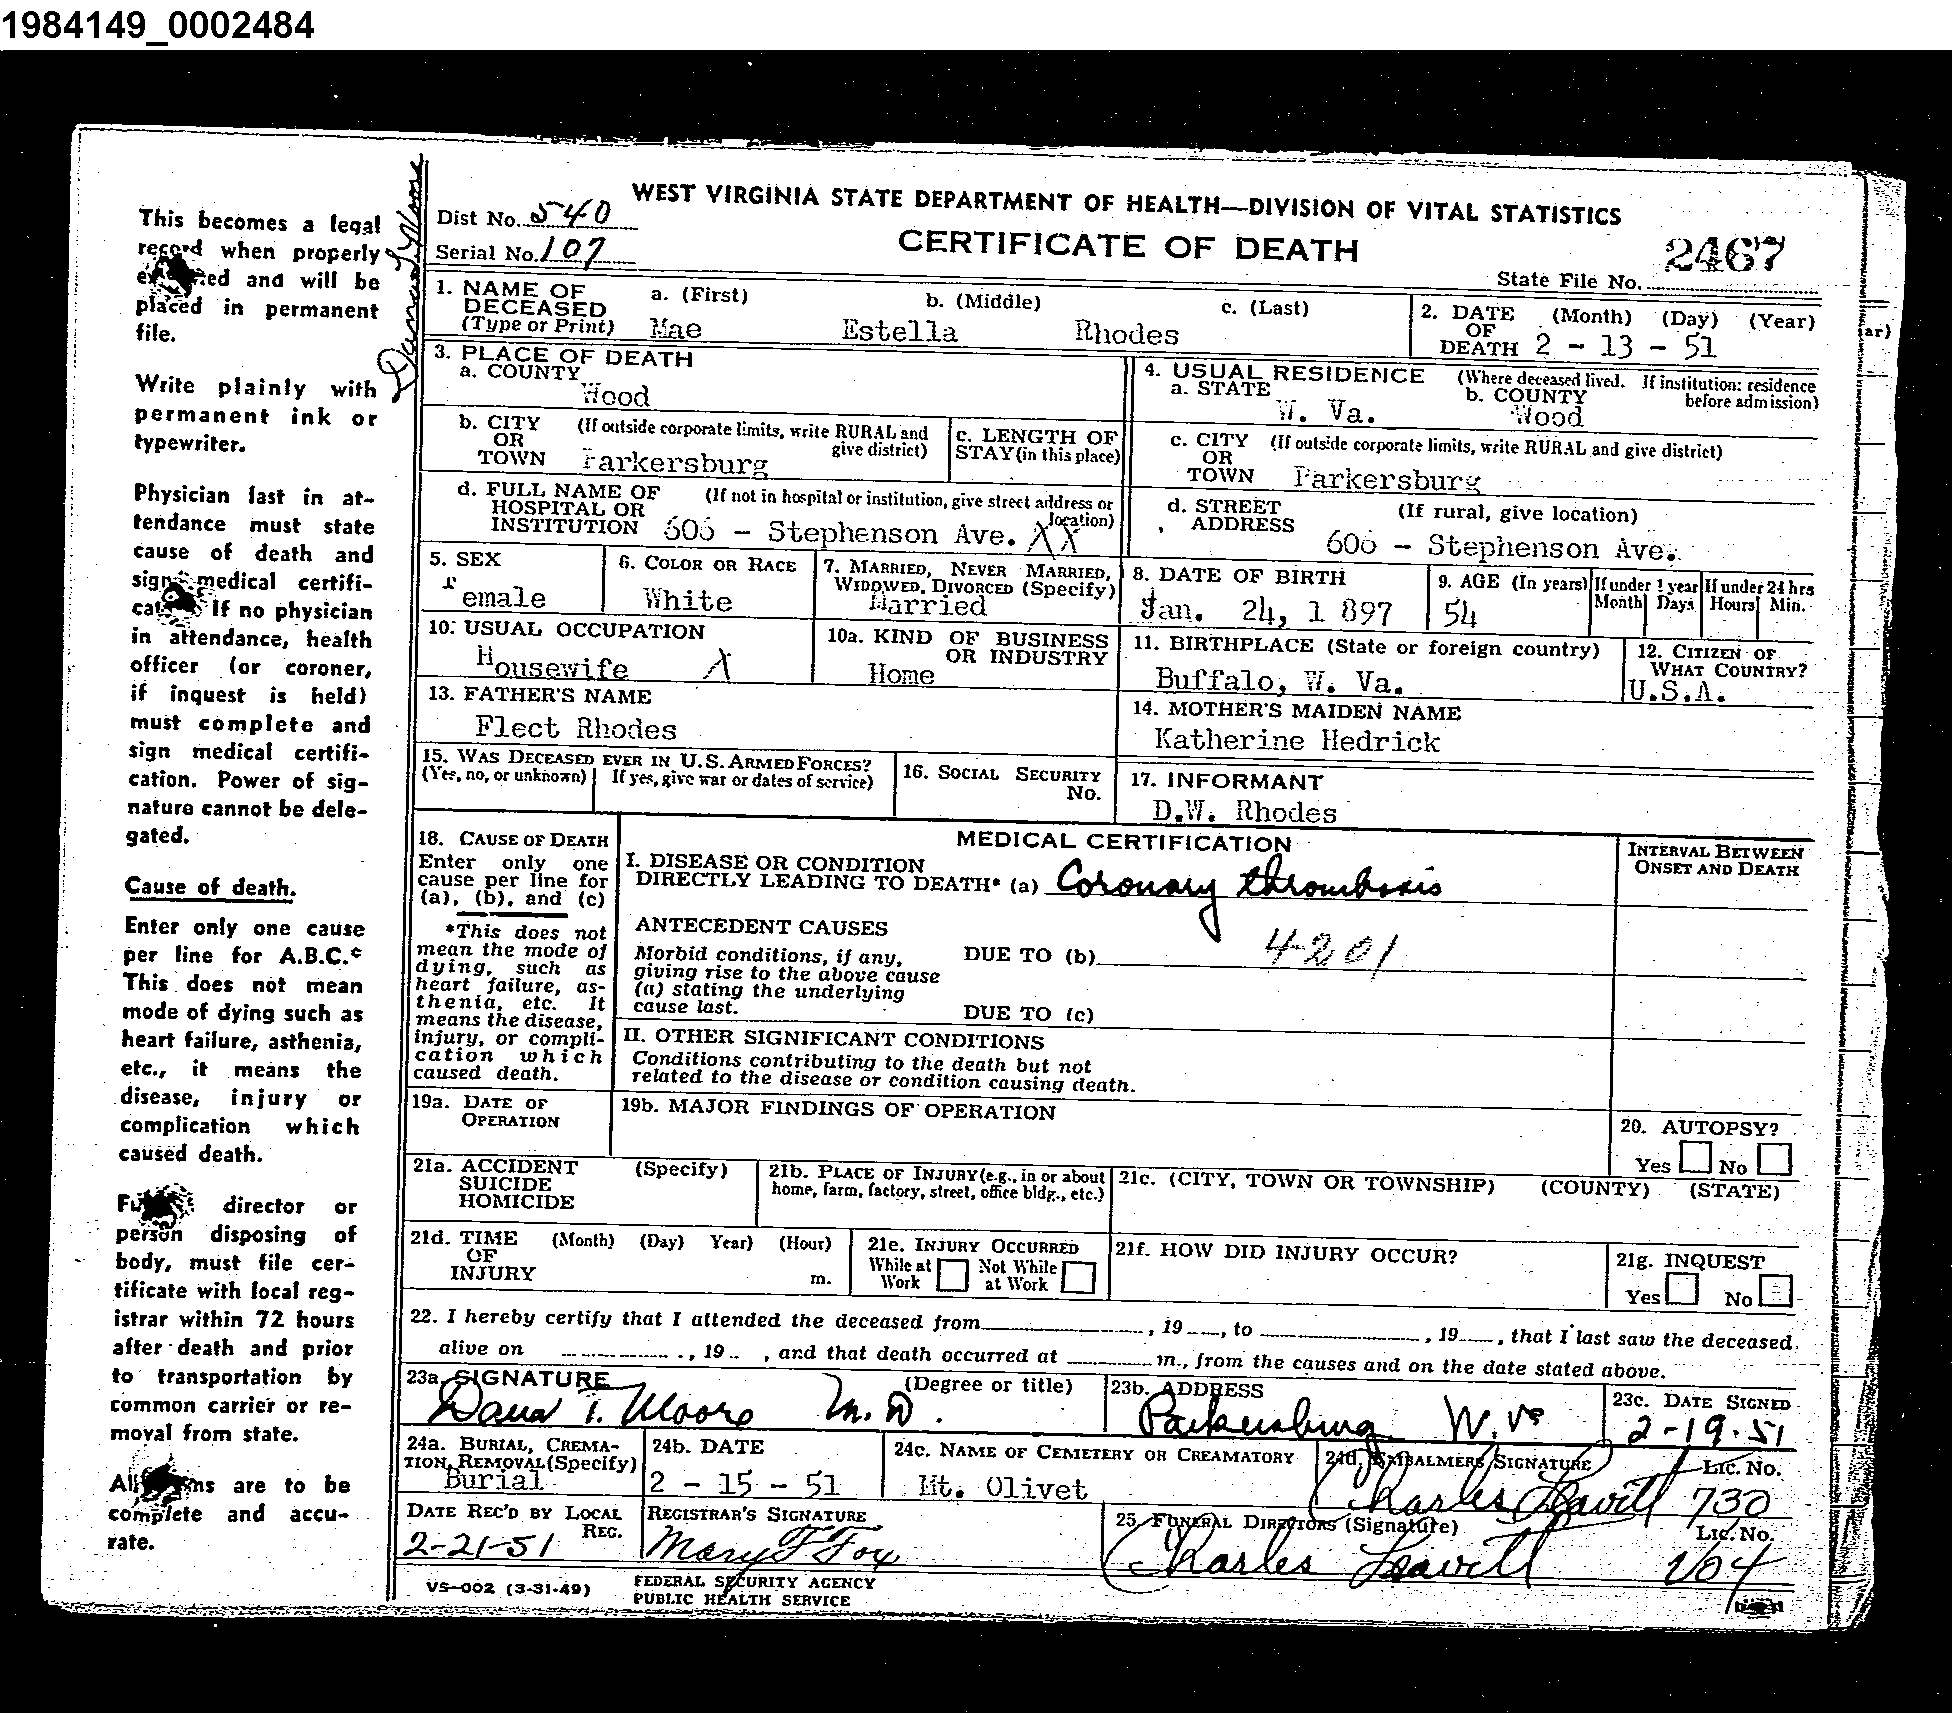 1984149_0002484
This becomes a legal
record when properly
and will be
placed in permanent
file.
Write plainly with
permanent ink or
typewriter.
Physician last in at-
tendance must state
cause of death and
sign medical certifi-
If no physician
in attendance, health
officer (or coroner,
if inquest is held)
must complete and
sign medical certifi-
cation. Power of sig-
nature cannot be dele-
gated.
Cause of death.
Enter only one cause
per line for A.B.C.
This does not mean
mode of dying such as
heart failure, asthenia,
etc., it means the
disease, injury or
complication which
caused death.
director or
person disposing of
body, must file cer-
tificate with local reg-
istrar within 72 hours
after death and prior
to transportation by
common carrier or re-
moval from state.
are to be
complete and accu-
rate.
Dana T. Moore
WEST VIRGINIA STATE DEPARTMENT OF HEALTH—DIVISION OF VITAL STATISTICS
Dist No. 540
CERTIFICATE OF DEATH
Serial No. 107
State File No. 2467
1. NAME OF DECEASED (Type or Print) a. (First) b. (Middle) c. (Last)
Mae Estella Rhodes
2. DATE OF DEATH (Month) (Day) (Year)
2 - 13 - 51
3. PLACE OF DEATH
a. COUNTY
Wood
4. USUAL RESIDENCE (Where deceased lived. If institution: residence before admission)
a. STATE b. COUNTY
W. Va. Wood
b. CITY OR TOWN (If outside corporate limits, write RURAL and give district)
Parkersburg
c. LENGTH OF STAY (in this place)
c. CITY OR TOWN (If outside corporate limits, write RURAL and give district)
Parkersburg
d. FULL NAME OF HOSPITAL OR INSTITUTION (If not in hospital or institution, give street address or location)
606 - Stephenson Ave. XX
d. STREET ADDRESS (If rural, give location)
606 - Stephenson Ave.
5. SEX
Female
6. COLOR OR RACE
White
7. MARRIED, NEVER MARRIED, WIDOWED, DIVORCED (Specify)
Married
8. DATE OF BIRTH
Jan. 24, 1 897
9. AGE (In years) If under 1 year If under 24 hrs
Month Days Hours Min.
54
10. USUAL OCCUPATION
Housewife X
10a. KIND OF BUSINESS OR INDUSTRY
Home
11. BIRTHPLACE (State or foreign country)
Buffalo, W. Va.
12. CITIZEN OF WHAT COUNTRY?
U.S.A.
13. FATHER'S NAME
Flect Rhodes
14. MOTHER'S MAIDEN NAME
Katherine Hedrick
15. WAS DECEASED EVER IN U.S. ARMED FORCES?
(Yes, no, or unknown) If yes, give war or dates of service)
16. SOCIAL SECURITY No.
17. INFORMANT
D.W. Rhodes
18. CAUSE OF DEATH
Enter only one
cause per line for
(a), (b), and (c)
*This does not
mean the mode of
dying, such as
heart failure, as-
thenia, etc. It
means the disease,
injury, or compli-
cation which
caused death.
MEDICAL CERTIFICATION
INTERVAL BETWEEN ONSET AND DEATH
I. DISEASE OR CONDITION
DIRECTLY LEADING TO DEATH* (a) Coronary thrombosis
ANTECEDENT CAUSES
4201
Morbid conditions, if any, DUE TO (b)
giving rise to the above cause
(a) stating the underlying
cause last. DUE TO (c)
II. OTHER SIGNIFICANT CONDITIONS
Conditions contributing to the death but not
related to the disease or condition causing death.
19a. DATE OF OPERATION
19b. MAJOR FINDINGS OF OPERATION
20. AUTOPSY?
Yes No
21a. ACCIDENT SUICIDE HOMICIDE (Specify)
21b. PLACE OF INJURY (e.g., in or about home, farm, factory, street, office bldg., etc.)
21c. (CITY, TOWN OR TOWNSHIP) (COUNTY) (STATE)
21d. TIME OF INJURY (Month) (Day) Year) (Hour) m.
21e. INJURY OCCURRED
While at Work Not While at Work
21f. HOW DID INJURY OCCUR?
21g. INQUEST
Yes No
22. I hereby certify that I attended the deceased from , 19 , to , 19 , that I last saw the deceased
alive on , 19 , and that death occurred at m., from the causes and on the date stated above.
23a. SIGNATURE (Degree or title)
Dana T. Moore M.D.
23b. ADDRESS
Parkersburg W. Va
23c. DATE SIGNED
2-19-51
24a. BURIAL, CREMATION, REMOVAL (Specify)
Burial
24b. DATE
2 - 15 - 51
24c. NAME OF CEMETERY OR CREAMATORY
Mt. Olivet
24d. EMBALMERS SIGNATURE LIC. NO.
Charles Leavitt 730
DATE REC'D BY LOCAL REG.
2-21-51
REGISTRAR'S SIGNATURE
Mary F Fox
25. FUNERAL DIRECTORS (Signature) LIC. NO.
Charles Leavitt 104
VS-002 (3-31-49)
FEDERAL SECURITY AGENCY
PUBLIC HEALTH SERVICE